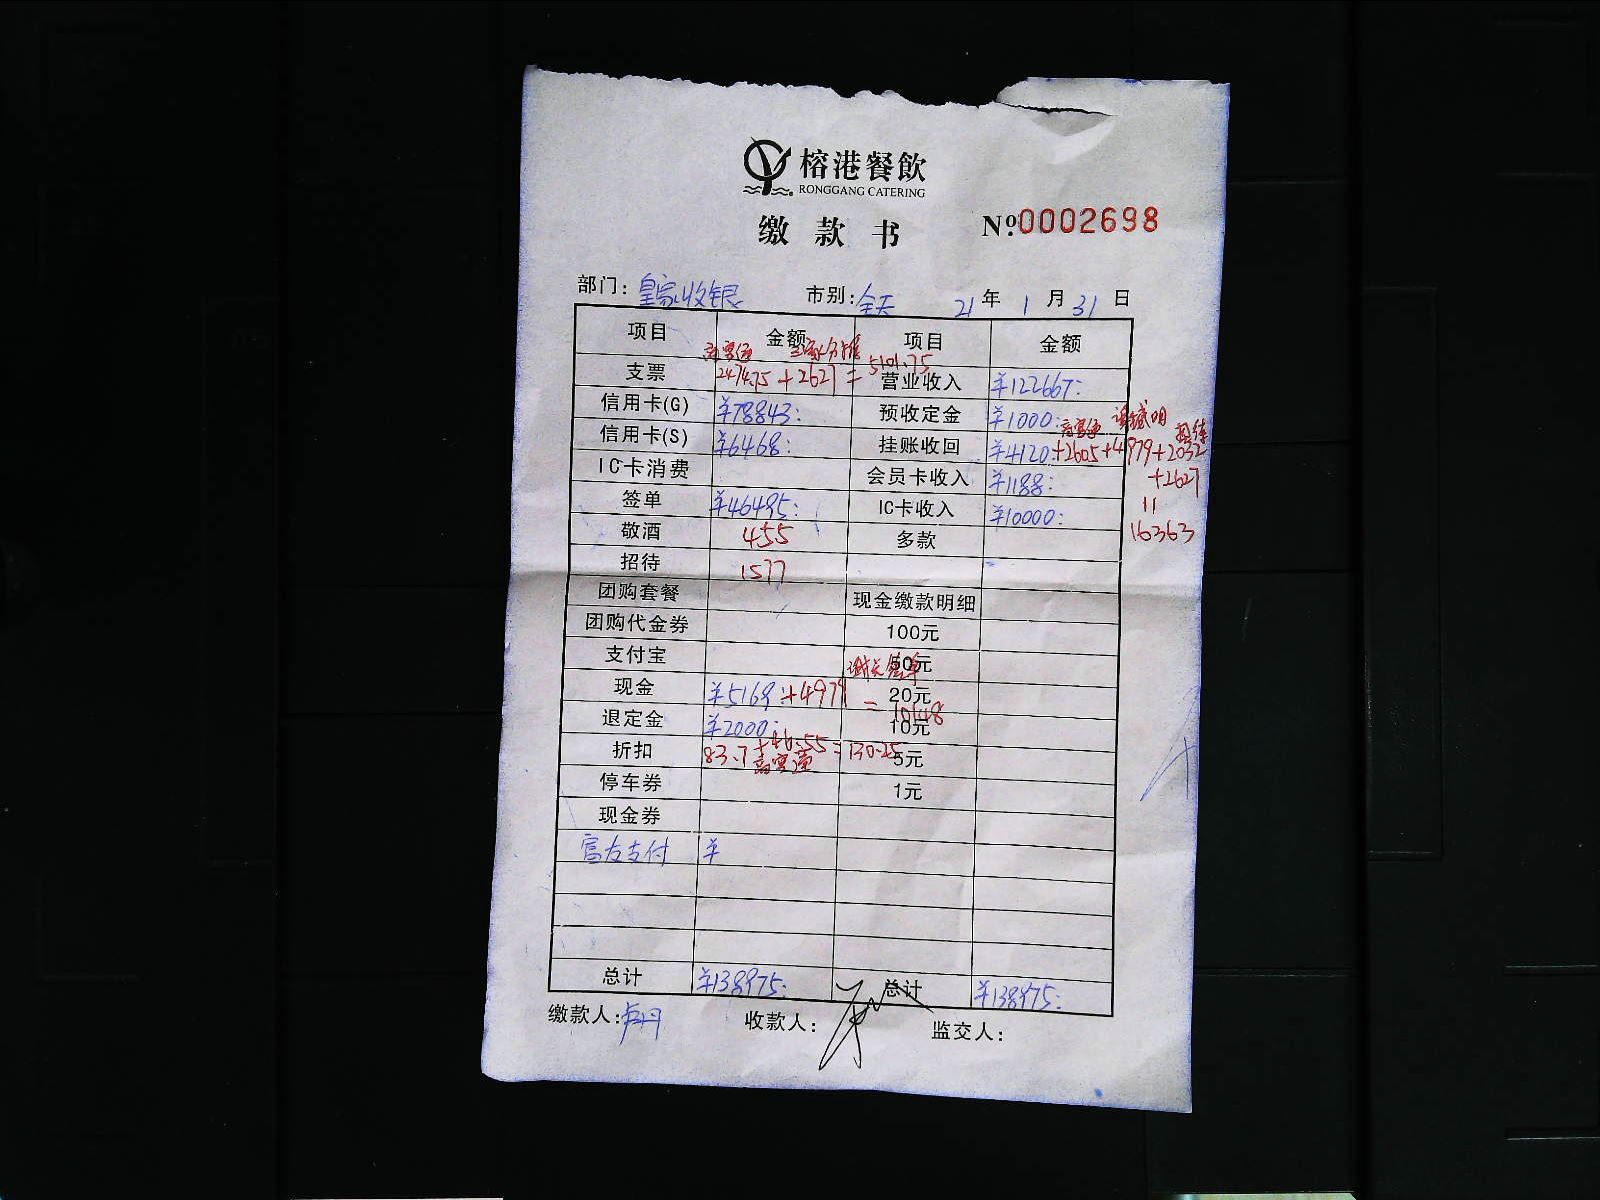 榕港餐飲
RONGGANG CATERING
缴款书
№:0002698
部门: 皇家收银 市别: 全天 21年1月31日
项目 金额 项目 金额
支票 2474.75+2627=5101.75 营业收入 ¥122667:
信用卡(G) ¥78843: 预收定金 ¥1000:
信用卡(S) ¥6468: 挂账收回 ¥4120:+2605+4979+2032
+2627
11
16363
IC卡消费 会员卡收入 ¥1188:
签单 ¥46495: IC卡收入 ¥10000:
敬酒 455 多款
招待 1577
团购套餐 现金缴款明细
团购代金券 100元
支付宝 50元
现金 ¥5169:+4979 = 10148 20元
退定金 ¥2000: 10元
折扣 83.7+46.55=130.25 5元
停车券 1元
现金券
富友支付 ¥
总计 ¥138975: 总计 ¥138975:
缴款人: 卢丹 收款人: 监交人: